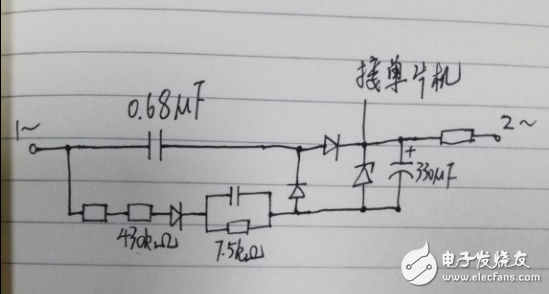 接单片机
0.68μF
1~
2~
+
330μF
430kΩ
7.5kΩ
电子发烧友
www.elecfans.com